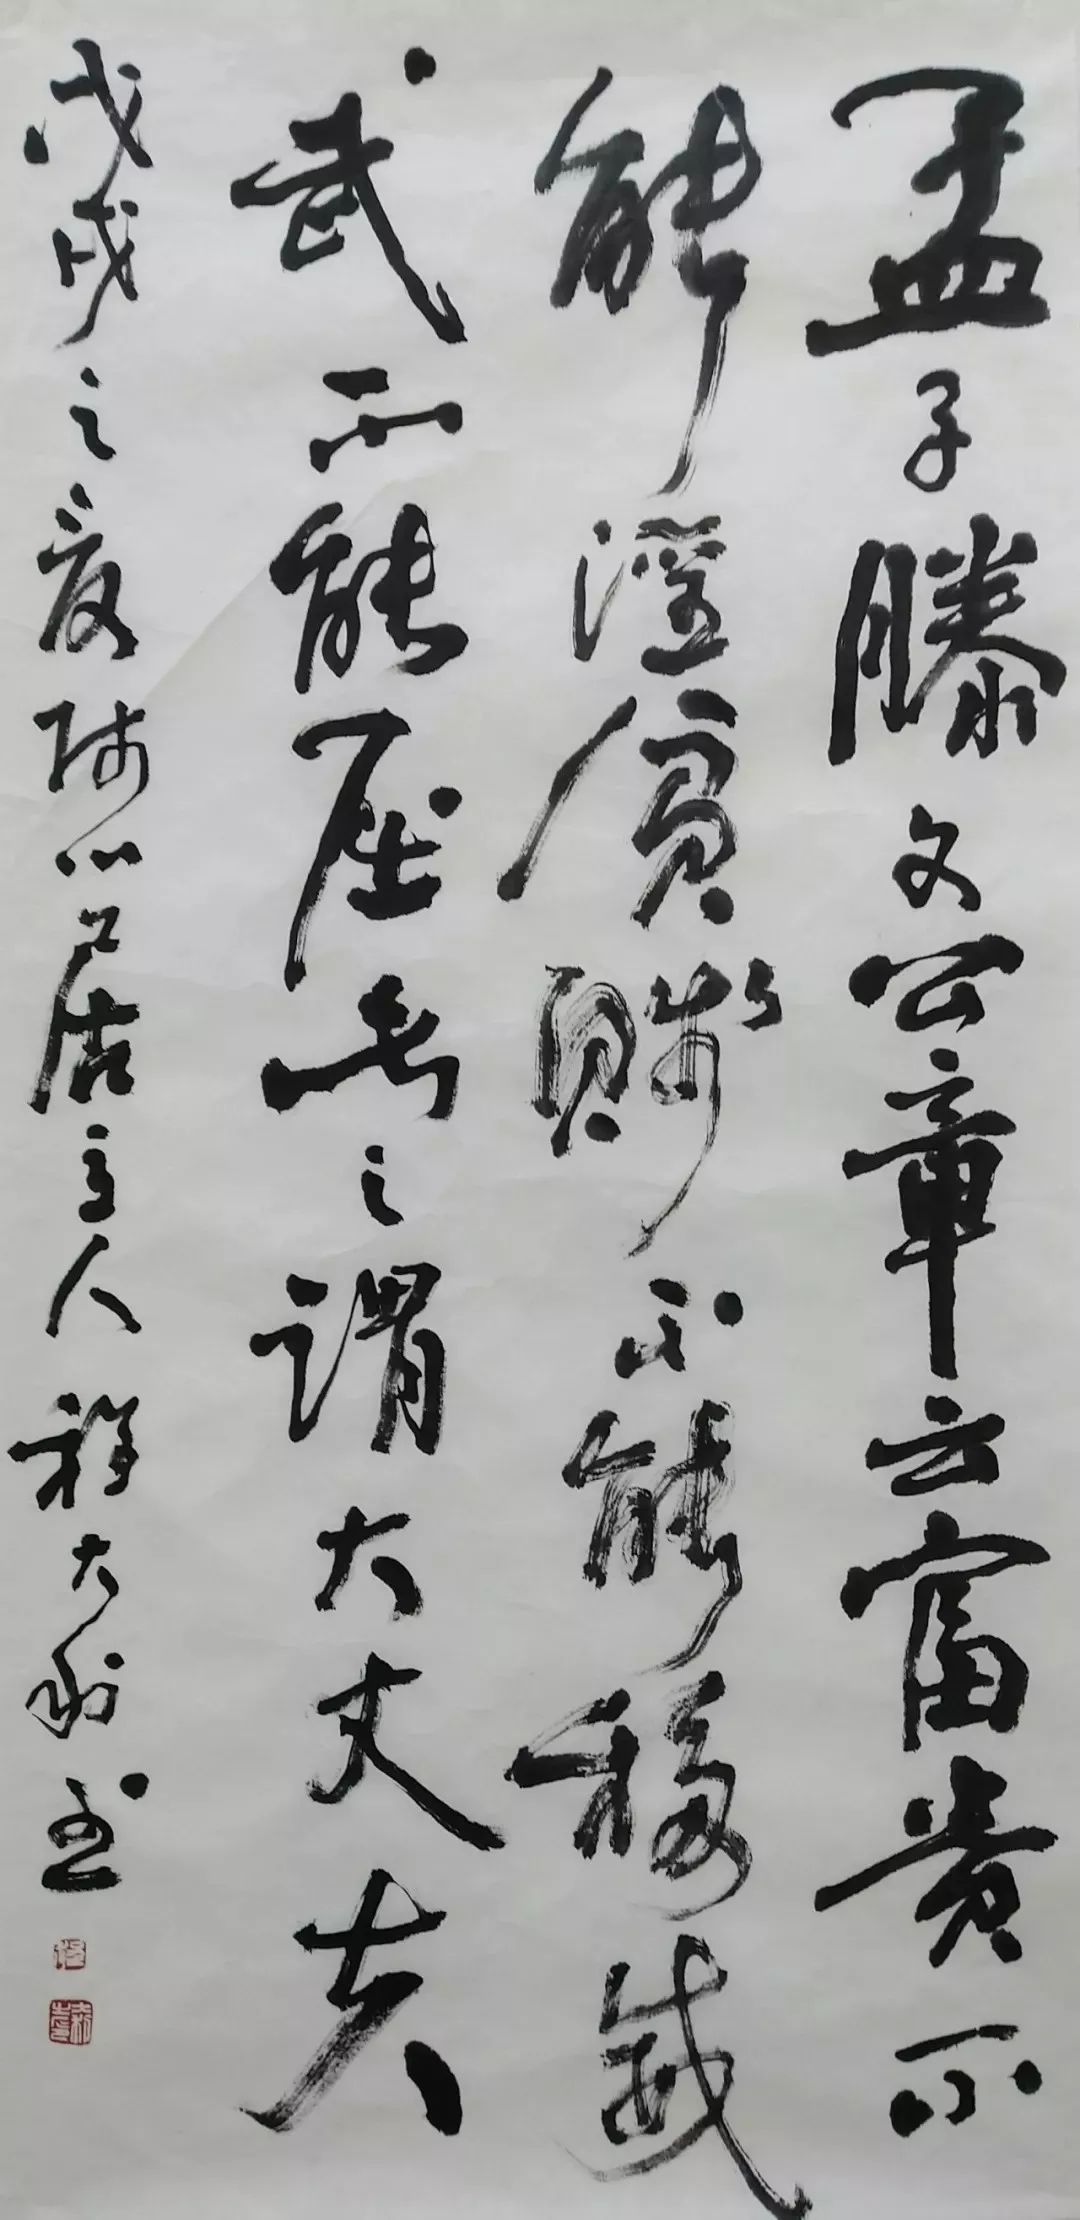 孟子滕文公章云富贵不
能淫贫贱不能移威
武不能屈此之谓大丈夫
戊戌之夏陋心居主人程大利书